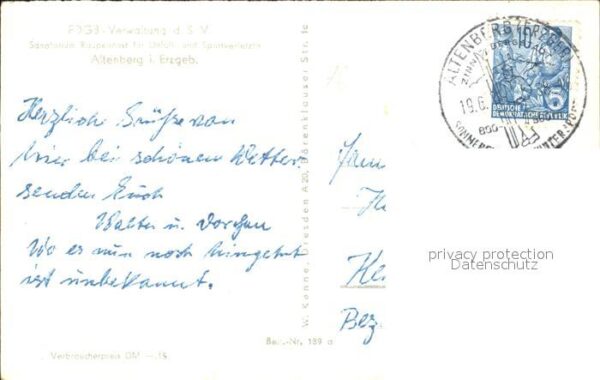 FDGB-Verwaltung d. S. V.
Sanatorium Raupennest für Unfall- und Sportverletzte
Altenberg i. Erzgeb.
Herzliche Grüße von
hier bei schönem Wetter
senden Euch
Walter u. Dorchen
Wo es nun noch hingeht
ist unbekannt.
Verbraucherpreis DM —.15
W. Kenne, Dresden A 20, Bärenklauser Str. 1c
Best.-Nr. 189 a
Fam
He
Bez
ALTENBERG (ERZGEB)
ZINN
BERG
10
19.6.
800
SOMMER
WINTERSPORT
5
DEUTSCHE
DEMOKRATISCHE REPUBLIK
privacy protection
Datenschutz